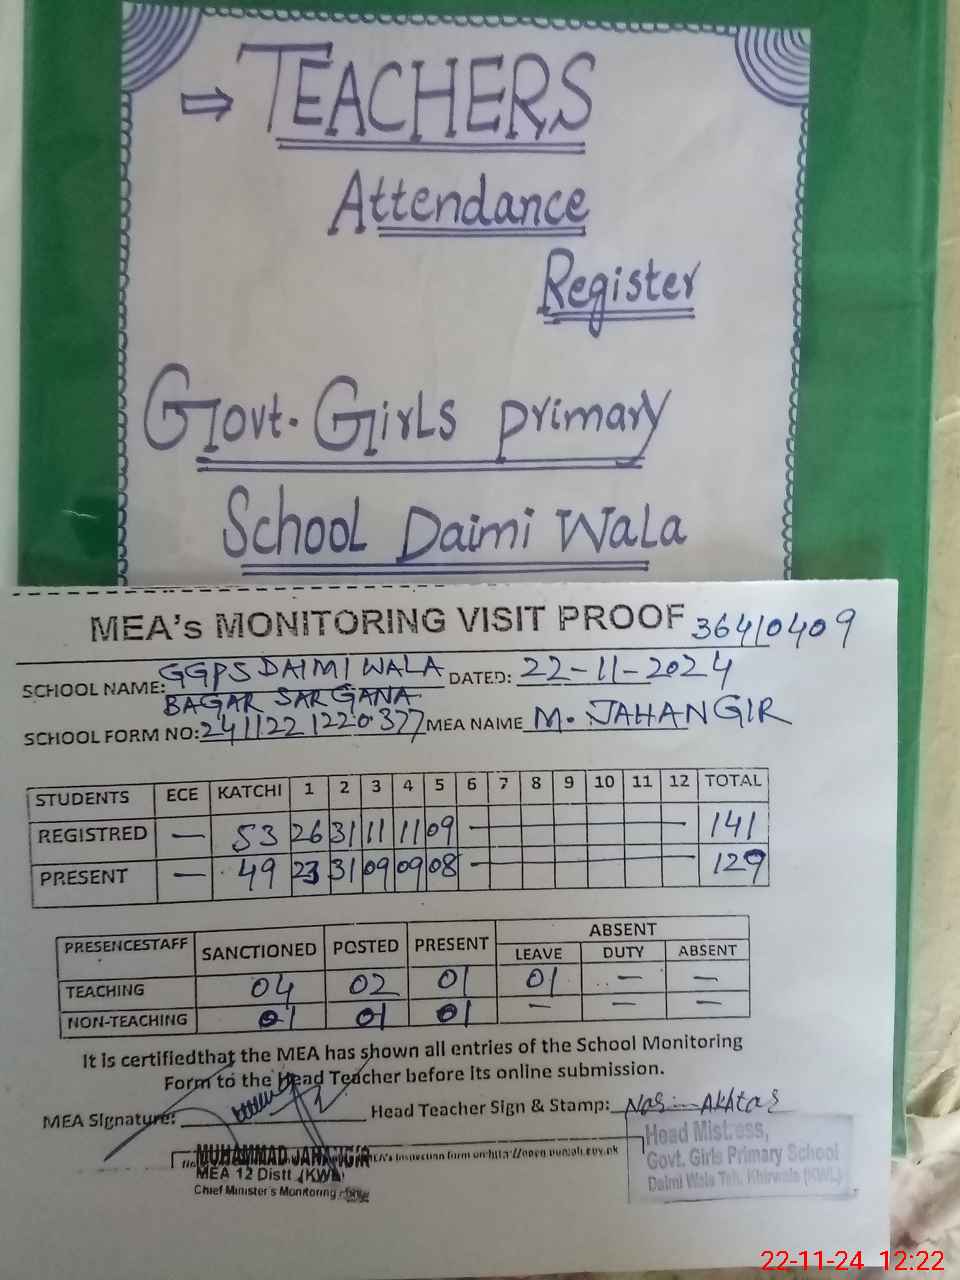 ⇒ TEACHERS
Attendance
Register
Govt. Girls primary
School Daimi Wala
MEA's MONITORING VISIT PROOF 36410409
SCHOOL NAME: GGPS DAIMI WALA DATED: 22-11-2024
BAGAR SARGANA
SCHOOL FORM NO: 2411221220377 MEA NAME M. JAHANGIR
STUDENTS ECE KATCHI 1 2 3 4 5 6 7 8 9 10 11 12 TOTAL
REGISTRED — 53 26 31 11 11 09 — 141
PRESENT — 49 23 31 09 09 08 — 129
PRESENCESTAFF SANCTIONED POSTED PRESENT ABSENT
LEAVE DUTY ABSENT
TEACHING 04 02 01 01 — —
NON-TEACHING 01 01 01 — — —
It is certifiedthat the MEA has shown all entries of the School Monitoring
Form to the Head Teacher before its online submission.
MEA Signature: Head Teacher Sign & Stamp: Nasim Akhtar
Head Mistress,
MUHAMMAD JAHANGIR
Govt. Girls Primary School
MEA 12 Distt (KWL)
Daimi Wala Teh. Kbirwala (KWL)
Chief Minister's Monitoring
22-11-24 12:22